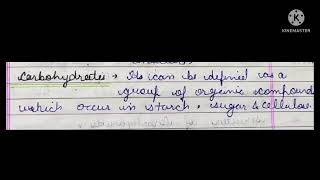 KINEMASTER
Carbohydrates → It can be defined as a
group of organic compound
which occur in starch, sugar & cellulose.